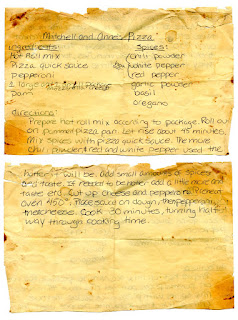 Mitchell and Anne's Pizza
ingredients: Spices:
Hot Roll mix chili powder
Pizza Quick sauce white pepper
pepperoni red pepper
1 large garlic powder
pans basil
oregano
directions:
Prepare hot roll mix according to package. Roll out
on pizza pan. Let rise about 45 minutes.
Mix spices with pizza quick sauce. The more
chili powder, red and white pepper used the
hotter it will be. Add small amounts of spices
and taste. If needed to be hotter add a little more and
taste etc. Cut up cheese and pepperoni. Preheat
oven 450°. Place sauce on dough, then pepperoni,
then cheese. Cook 30 minutes, turning half
way through cooking time.